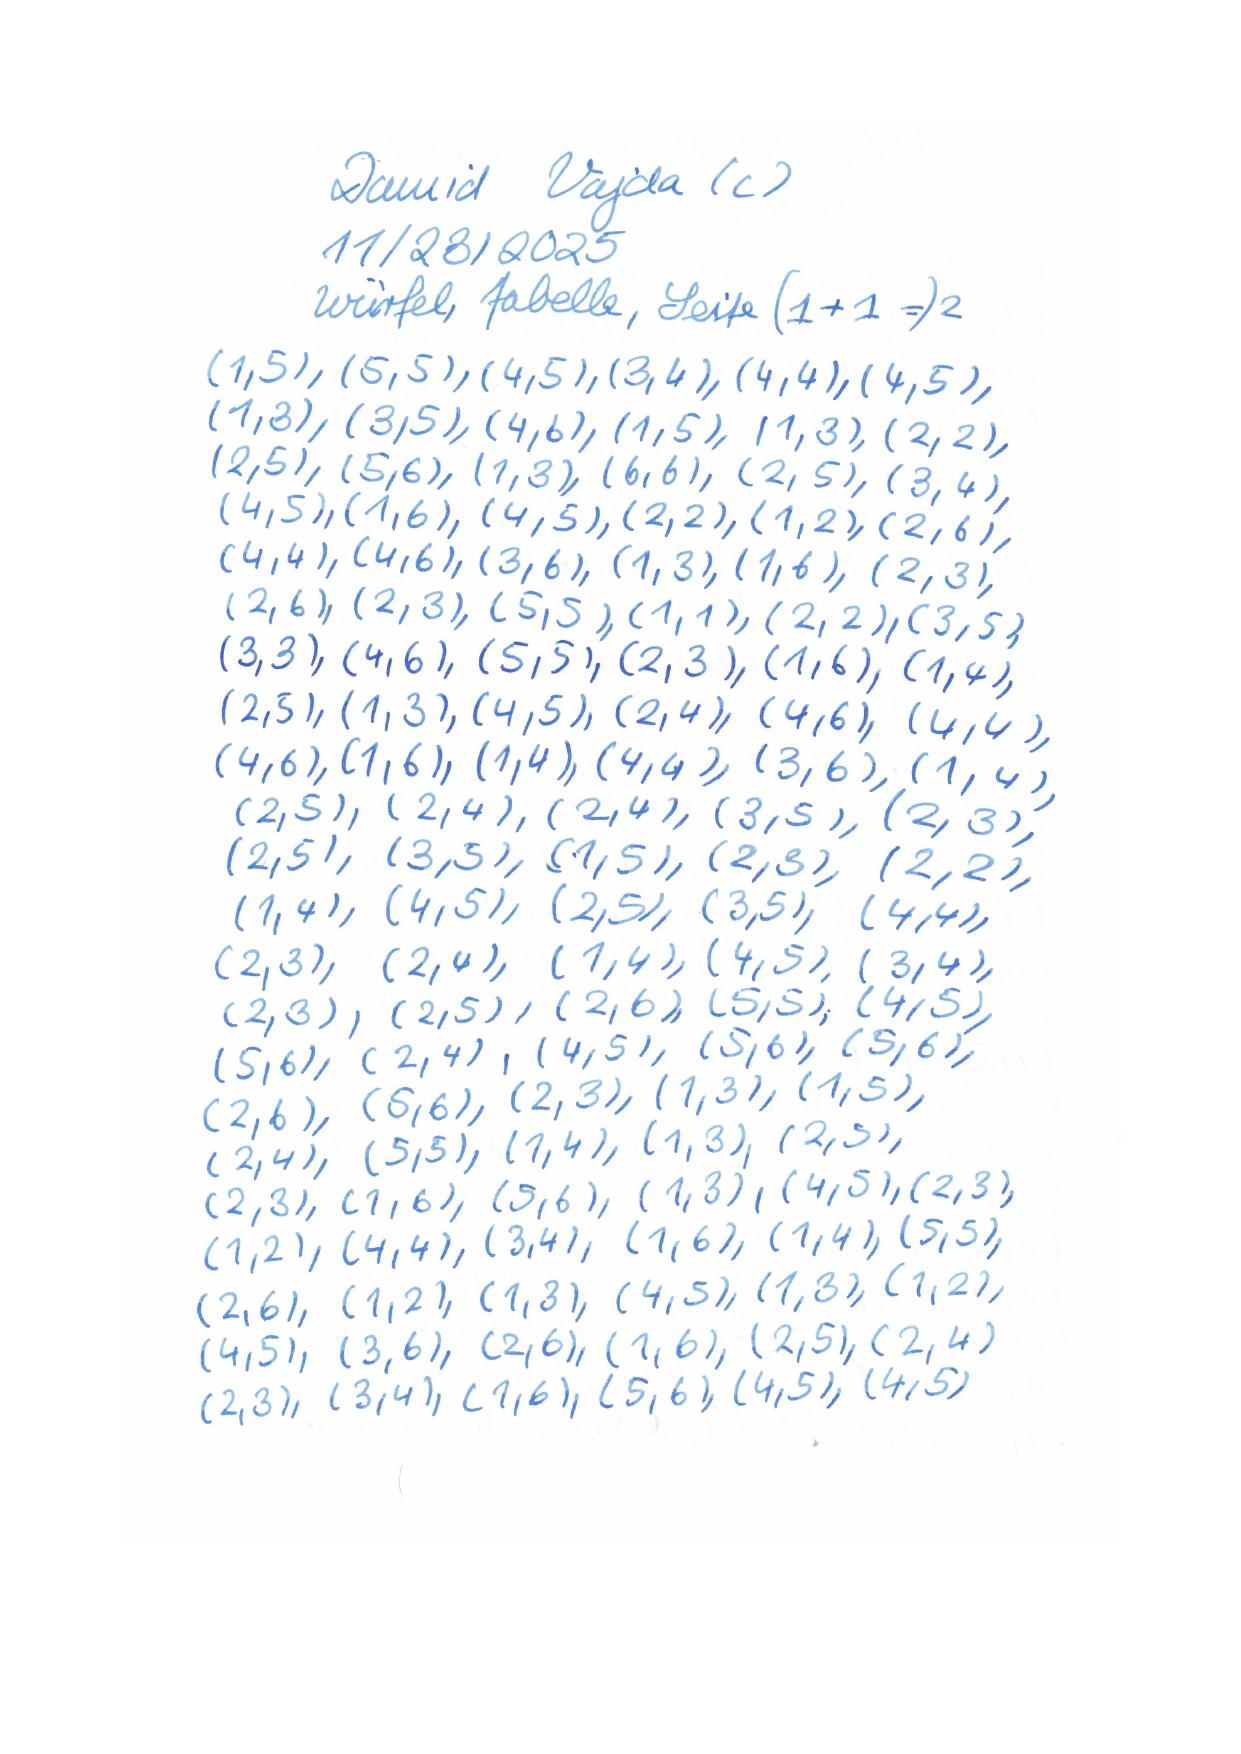 David Vajda (c)
11/28/2025
Würfel, Tabelle, Seite (1+1=)2
(1,5), (5,5), (4,5), (3,4), (4,4), (4,5),
(1,3), (3,5), (4,6), (1,5), (1,3), (2,2),
(2,5), (5,6), (1,3), (6,6), (2,5), (3,4),
(4,5), (1,6), (4,5), (2,2), (1,2), (2,6),
(4,4), (4,6), (3,6), (1,3), (1,6), (2,3),
(2,6), (2,3), (5,5), (1,1), (2,2), (3,5),
(3,3), (4,6), (5,5), (2,3), (1,6), (1,4),
(2,5), (1,3), (4,5), (2,4), (4,6), (4,4),
(4,6), (1,6), (1,4), (4,4), (3,6), (1,4),
(2,5), (2,4), (2,4), (3,5), (2,3),
(2,5), (3,5), (1,5), (2,3), (2,2),
(1,4), (4,5), (2,5), (3,5), (4,4),
(2,3), (2,4), (1,4), (4,5), (3,4),
(2,3), (2,5), (2,6), (5,5), (4,5),
(5,6), (2,4), (4,5), (5,6), (5,6),
(2,6), (5,6), (2,3), (1,3), (1,5),
(2,4), (5,5), (1,4), (1,3), (2,5),
(2,3), (1,6), (5,6), (1,3), (4,5), (2,3),
(1,2), (4,4), (3,4), (1,6), (1,4), (5,5),
(2,6), (1,2), (1,3), (4,5), (1,3), (1,2),
(4,5), (3,6), (2,6), (1,6), (2,5), (2,4)
(2,3), (3,4), (1,6), (5,6), (4,5), (4,5)